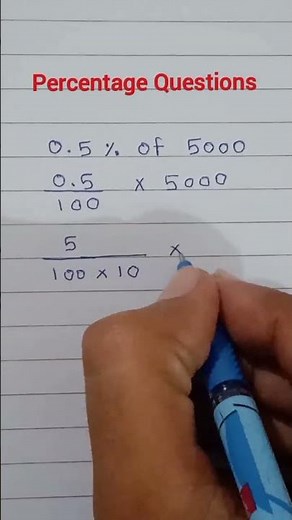 Percentage Questions
0.5 % of 5000
0.5
100 x 5000
5
100 x 10 x